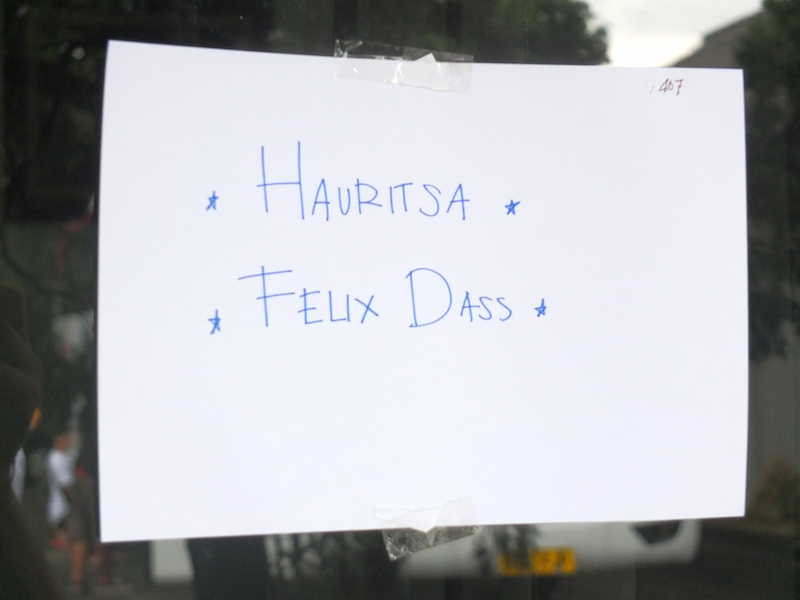 407
★ HAURITSA ★
★ FELIX DASS ★